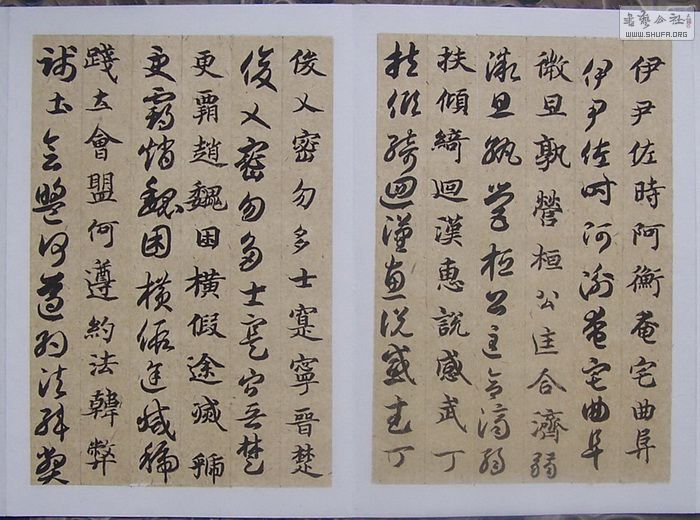 書藝公社
WWW.SHUFA.ORG
伊尹佐時阿衡奄宅曲阜
伊尹佐時阿衡奄宅曲阜
微旦孰營桓公匡合濟弱
微旦孰營桓公匡合濟弱
扶傾綺迴漢惠說感武丁
扶傾綺迴漢惠說感武丁
俊乂密勿多士寔寧晉楚
俊乂密勿多士寔寧晉楚
更覇趙魏困橫假途滅虢
更覇趙魏困橫假途滅虢
踐土會盟何遵約法韓弊
踐土會盟何遵約法韓弊